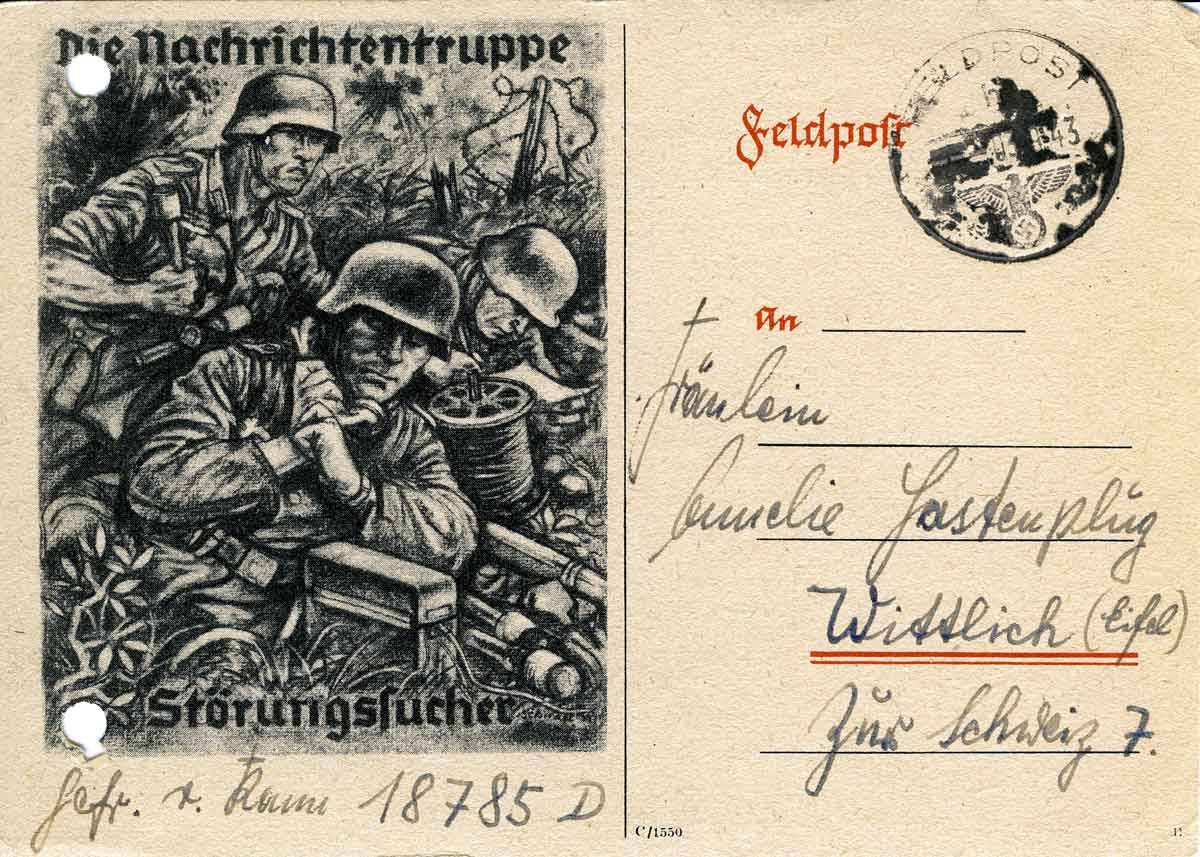 Die Nachrichtentruppe
Störungssucher
Gefr. v. Kann 18785 D
FELDPOST
43
Feldpost
An
Fräulein
Annelie Hastenplüg
Wittlich (Eifel)
Zur Schweiz 7.
C/1550